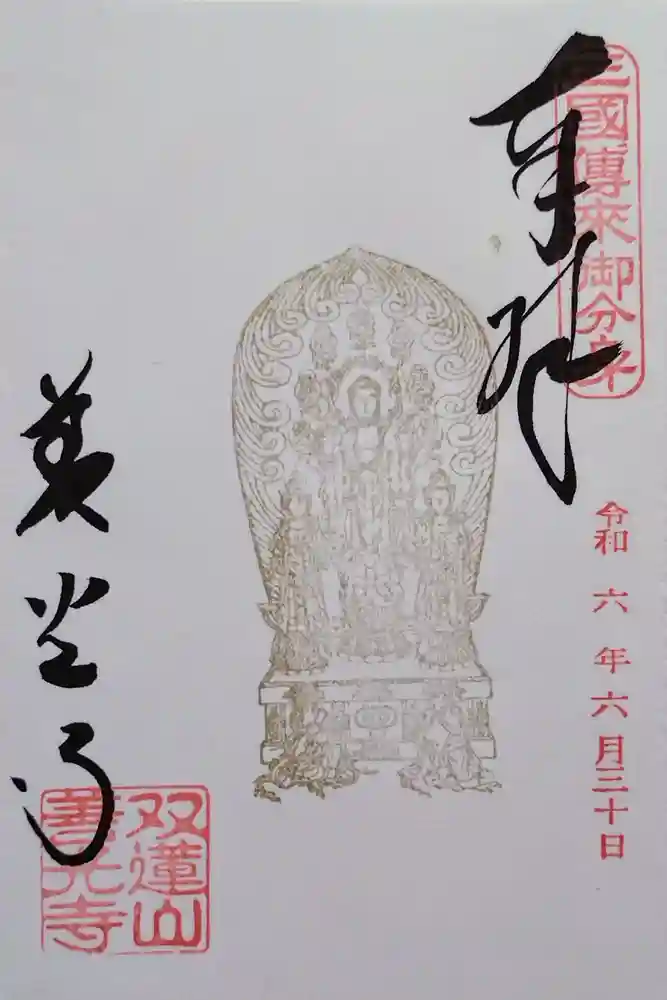 三國傳來御分身
奉拝
令和六年六月三十日
善光寺
双蓮山
善光寺